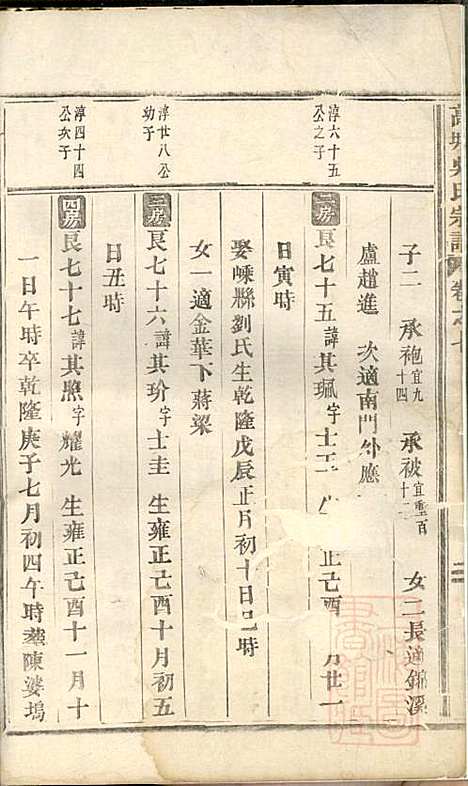 吳氏宗譜 卷之七
子二 承袍宜九十四 承被宜重百十二 女二長適錦溪
盧趙進 次適南門外應
淳六十五公之子
二房 良七十五諱其珮字士 生 正己酉 月廿一
日寅時
娶嵊縣劉氏生乾隆戊辰正月初十日巳時
女一適金華下蔣梁
淳廿八公幼子
三房 良七十六諱其玠字士圭 生雍正己酉十月初五
日丑時
淳四十四公次子
四房 良七十七諱其照字耀光 生雍正己酉十一月十
一日午時卒乾隆庚子七月初四午時葬陳婆塢